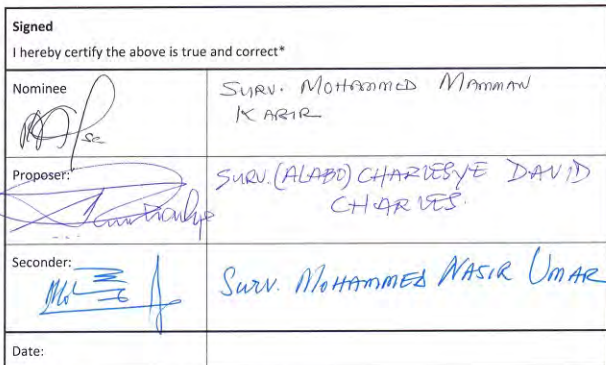 Signed
I hereby certify the above is true and correct*
Nominee
SURV. MOHAMMED MAMMAN
KABIR
Proposer:
SURV. (ALABO) CHARLESYE DAVID
CHARLES.
Seconder:
SURV. MOHAMMED NASIR UMAR
Date: